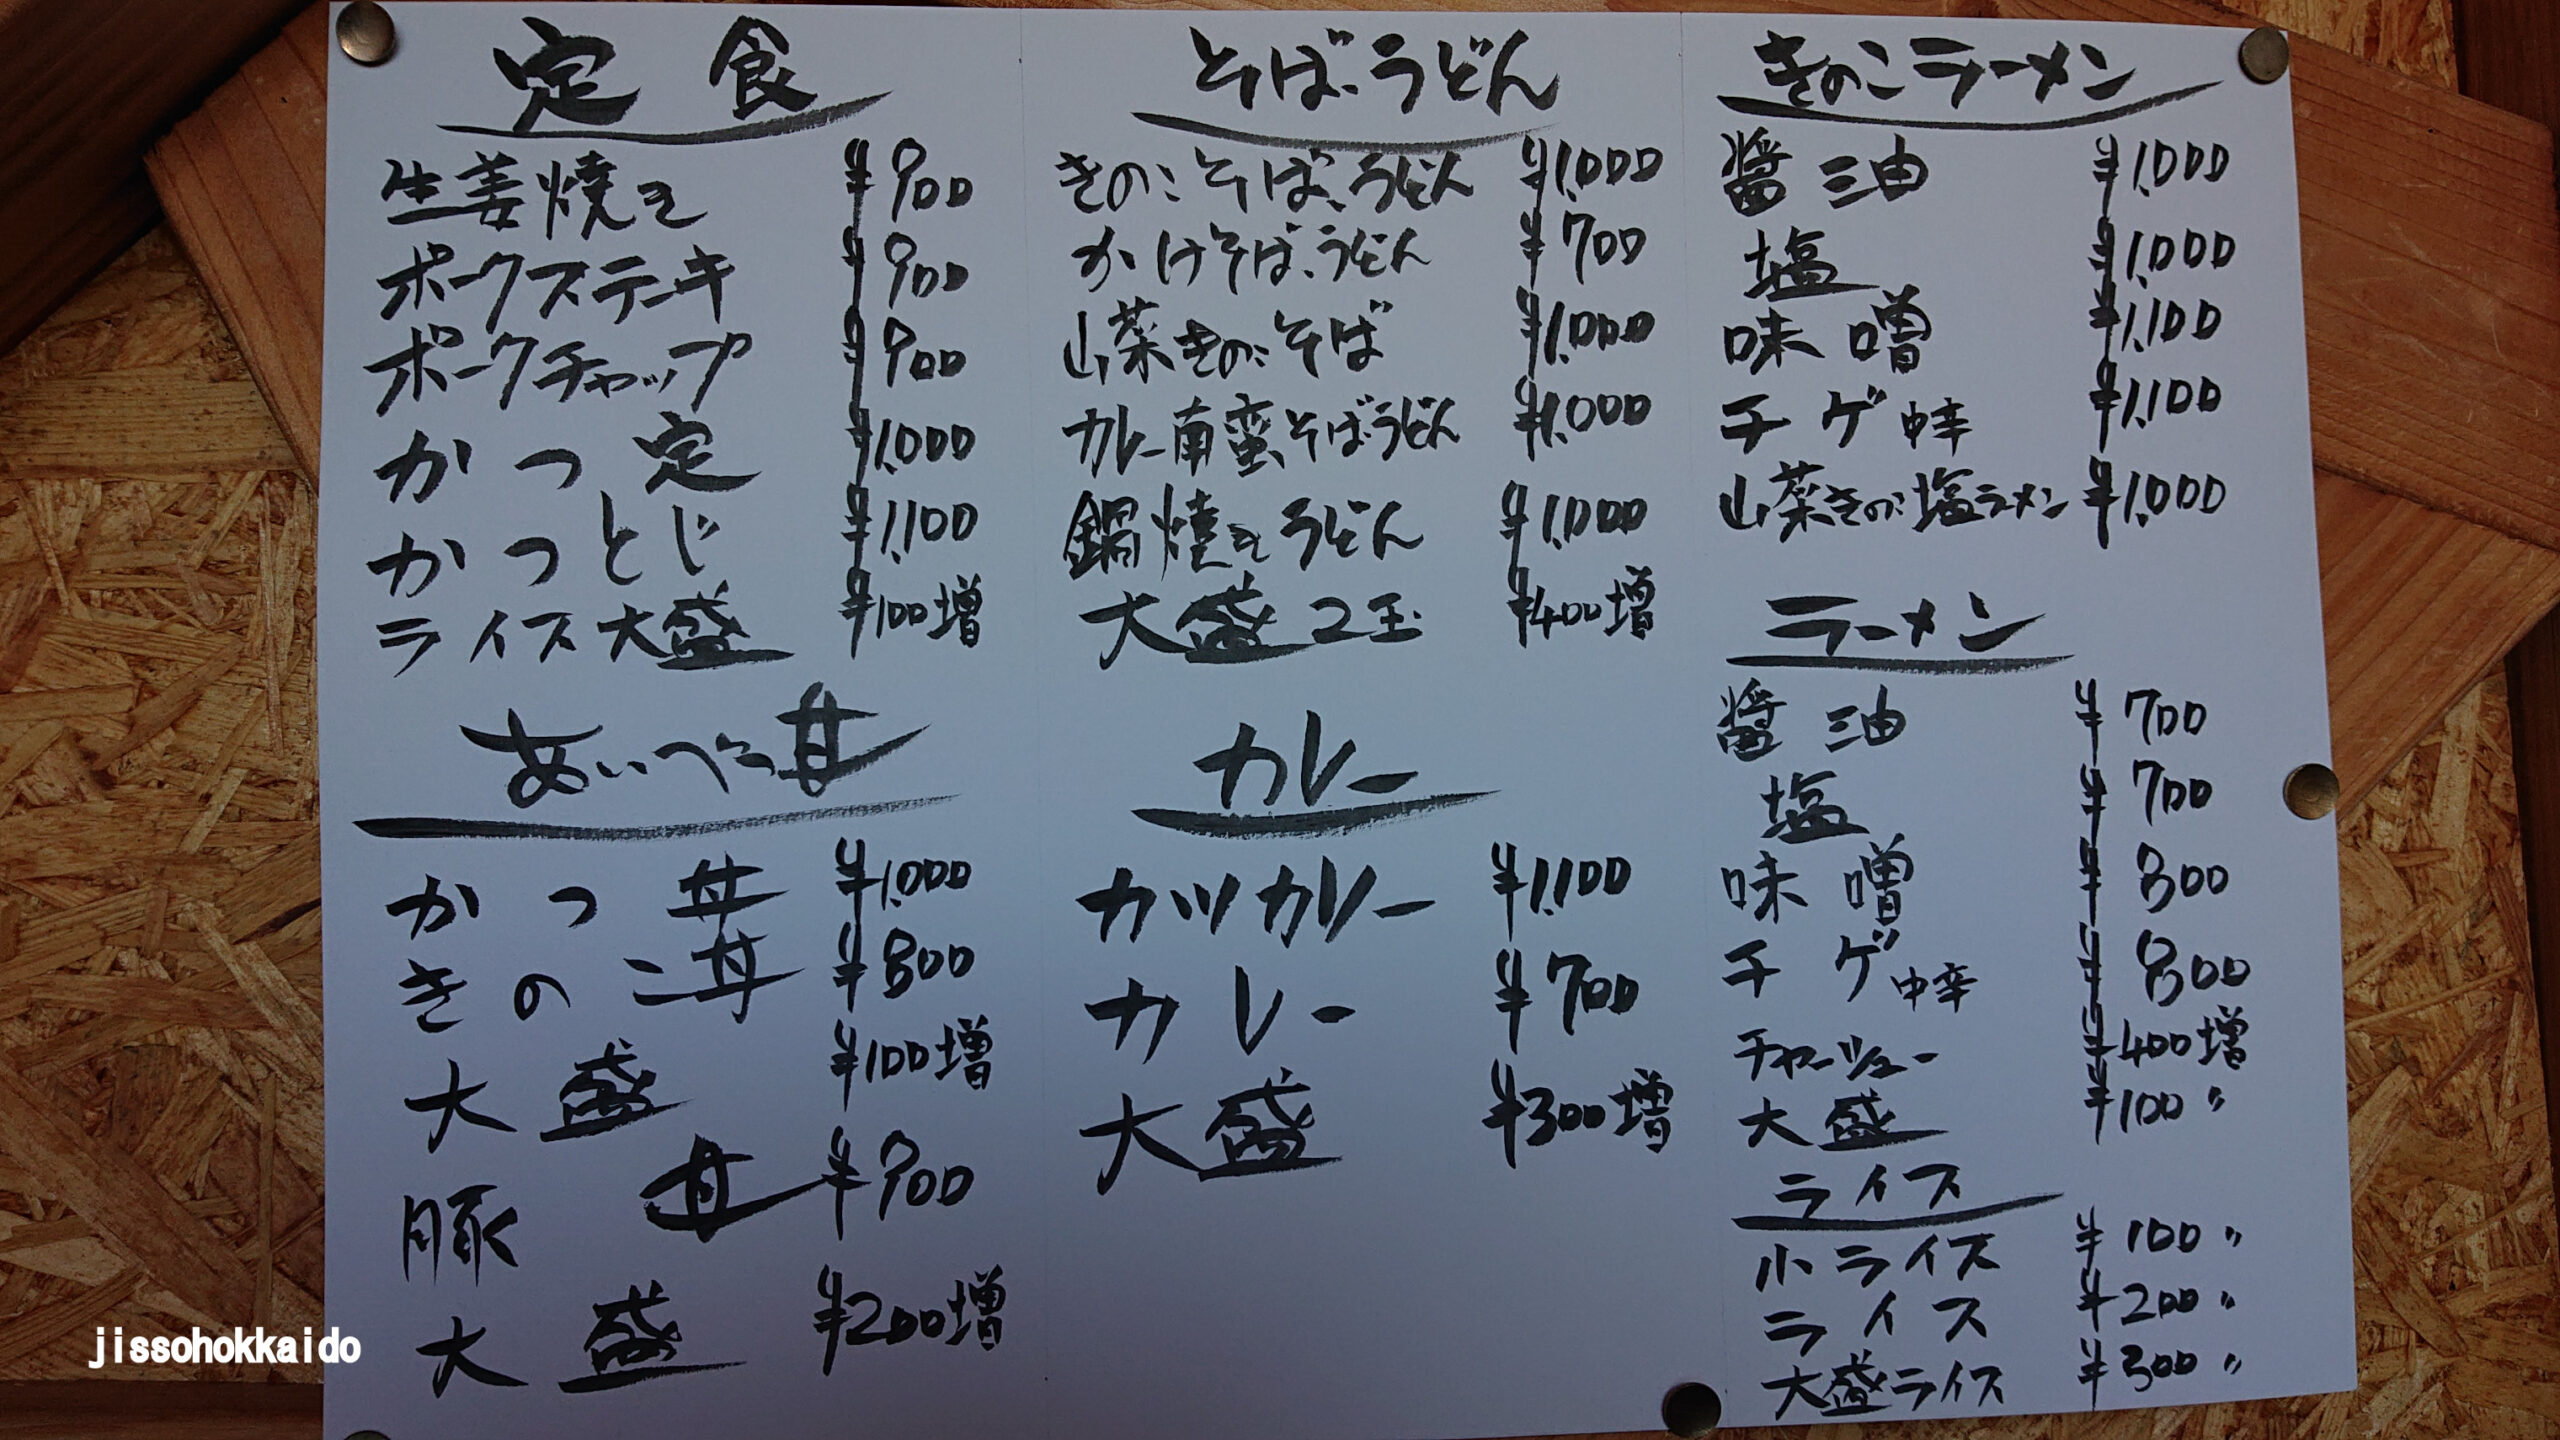 定食
生姜焼き ¥900
ポークステーキ ¥900
ポークチャップ ¥900
かつ定 ¥1,000
かつとじ ¥1,100
ライス大盛 ¥100増
あいべつ丼
かつ丼 ¥1,000
きのこ丼 ¥800
大盛 ¥100増
豚丼 ¥900
大盛 ¥200増
そば、うどん
きのこそば、うどん ¥1,000
かけそば、うどん ¥700
山菜きのこそば ¥1,000
カレー南蛮、そばうどん ¥1,000
鍋焼きうどん ¥1,000
大盛2玉 ¥400増
カレー
カツカレー ¥1,100
カレー ¥700
大盛 ¥300増
きのこラーメン
醤油 ¥1,000
塩 ¥1,000
味噌 ¥1,100
チゲ中辛 ¥1,100
山菜きのこ塩ラーメン ¥1,000
ラーメン
醤油 ¥700
塩 ¥700
味噌 ¥800
チゲ中辛 ¥800
チャーシュー ¥400増
大盛 ¥100〃
ライス
小ライス ¥100〃
ライス ¥200〃
大盛ライス ¥300〃
jissohokkaido